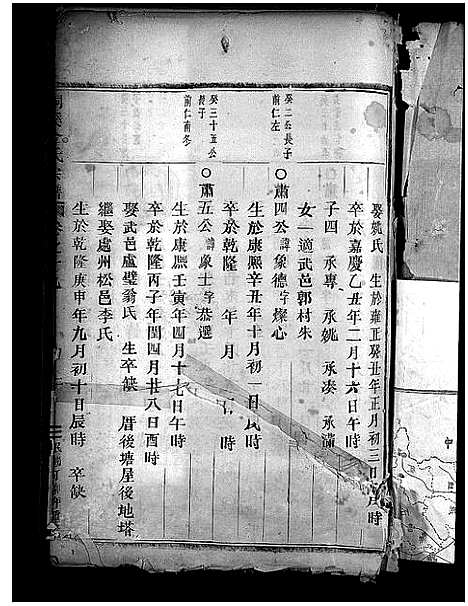 娶施氏 生於雍正癸丑年正月初三日 時
卒於嘉慶乙丑年二月十六日午時
子四 承專 承姚 承湊 承滿
女一適武邑郭村朱
癸二公長子
前仁左
○肅四公諱象德字燦心
生於康熙辛丑年十月初一日 時
卒於乾隆 年 月 日 時
癸三十五公
長子
前仁前冬
○肅五公諱象士字恭選
生於康熙壬寅年四月十七日午時
卒於乾隆丙子年閏四月廿八日酉時
娶武邑盧璧翁氏 生卒缺 厝後塘屋後地塔
繼娶處州松邑李氏
生於乾隆庚申年九月初十日辰時 卒缺